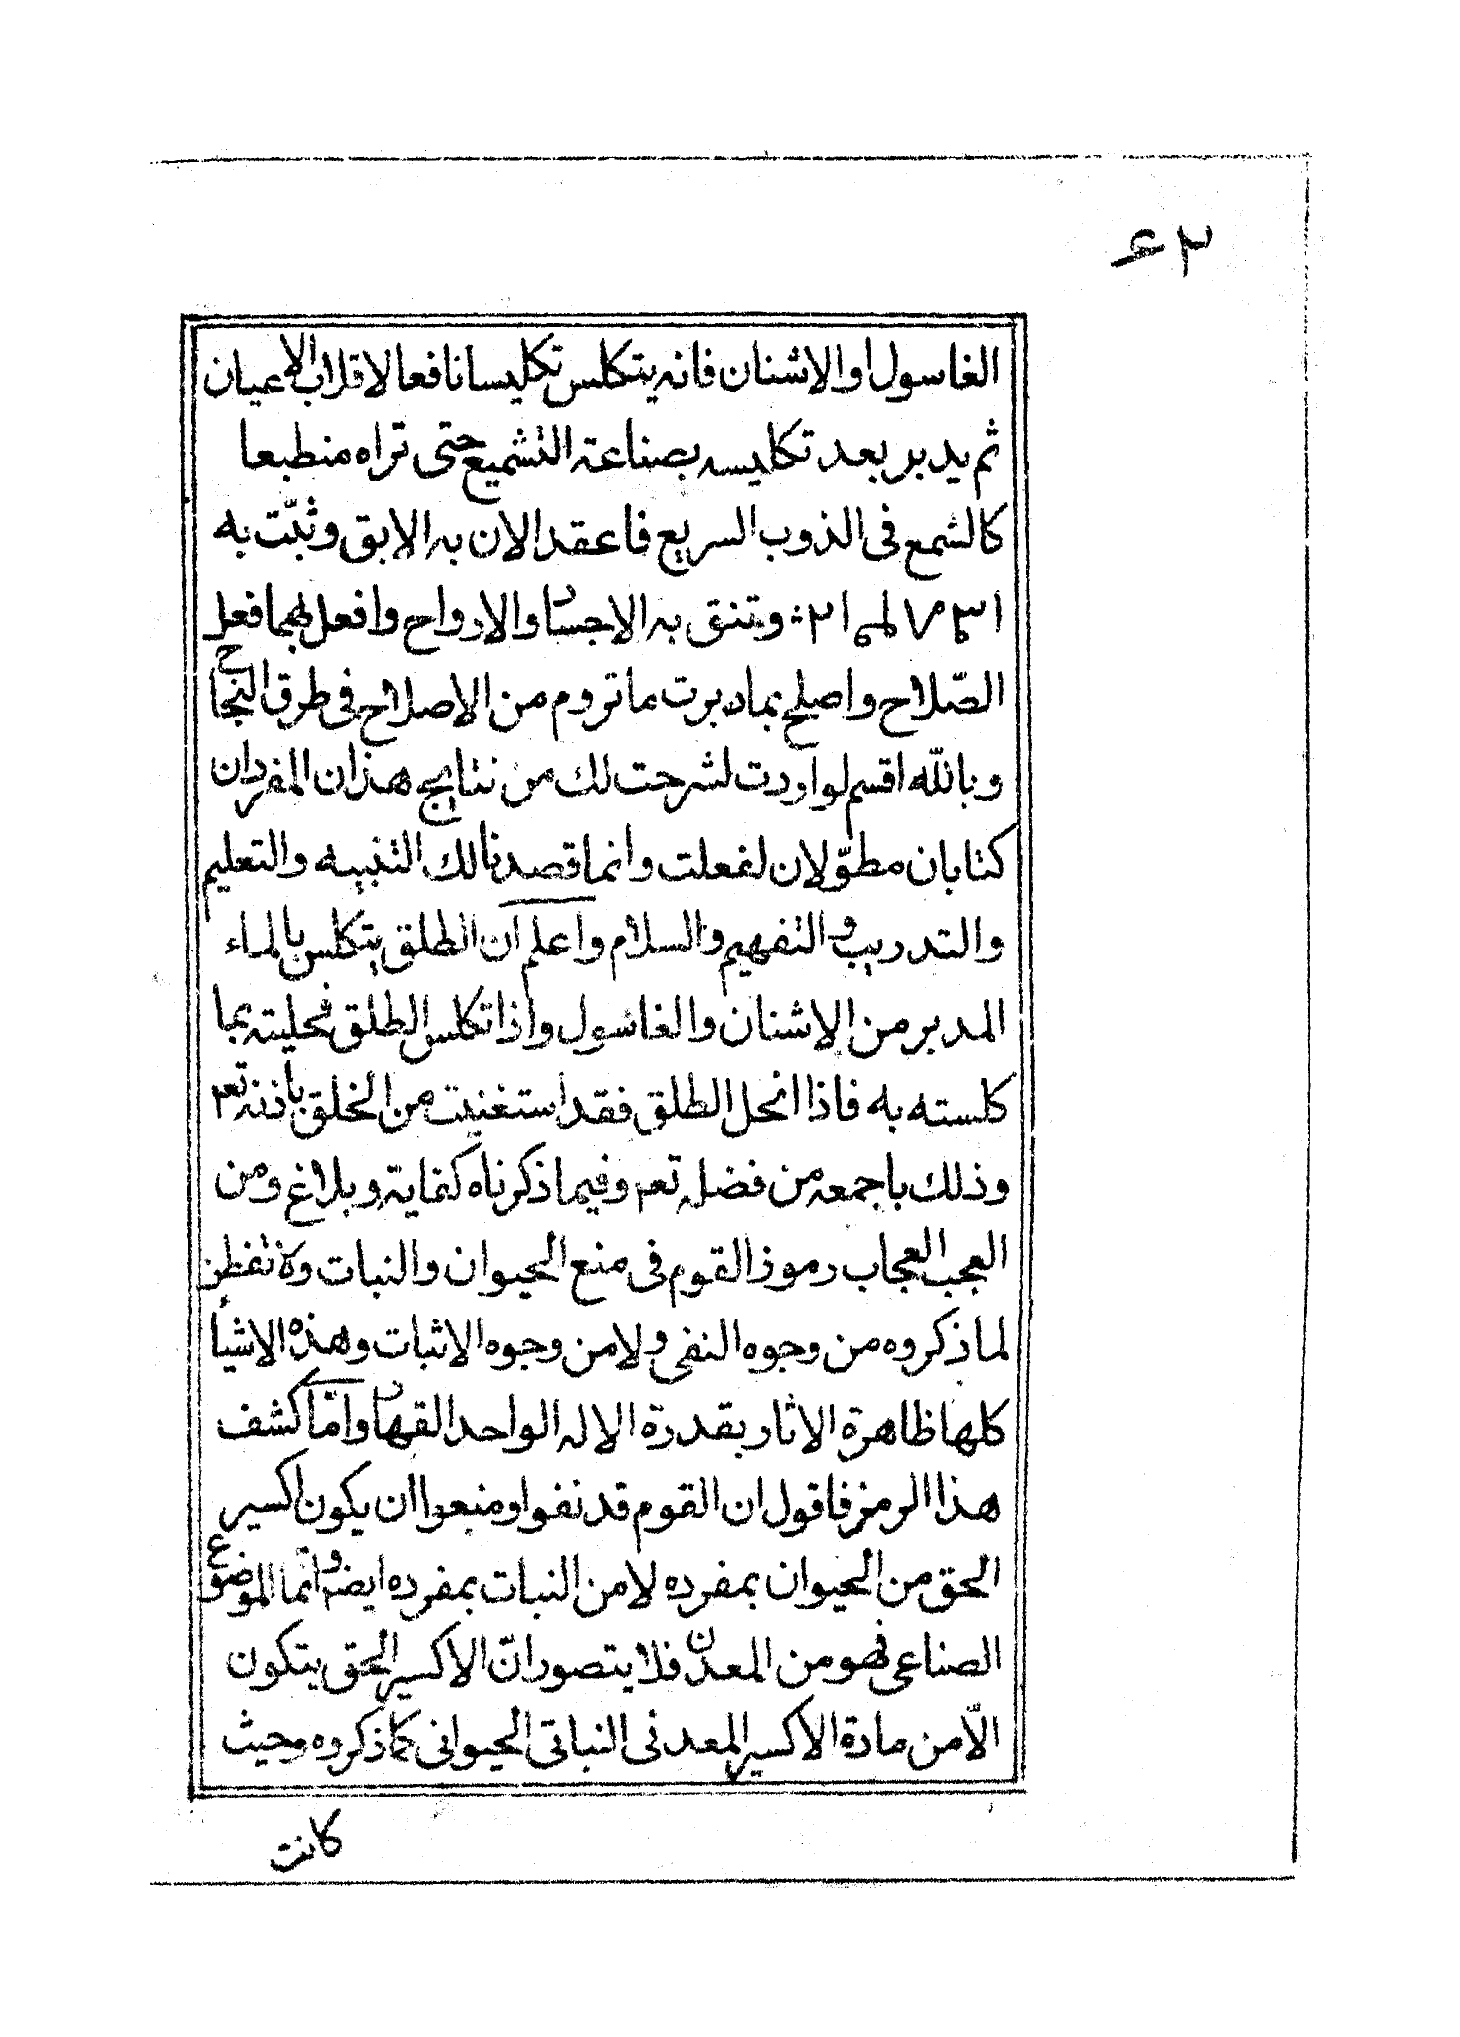 ٢ع
الغاسول او الاشنان فانه يتكلس تكليسا نافعا لاقلاب الاعيان
ثم يدبر بعد تكليسه بصناعة التشميع حتى تراه منطبعا
كالشمع فى الذوب السريع فاعقد الان به الابق وثبّت به
وتنقى به الاجساد والارواح وافعل بهما فعل
الصّلاح واصلح بما دبرت ما تروم من الاصلاح فى طرق النجاح
وبالله اقسم لو اردت لشرحت لك من نتايج هذان المفردان
كتابان مطوّلان لفعلت وانما قصدنا لك التنبيه والتعليم
والتدريب والتفهيم والسلام واعلم ان الطلق يتكلس بالماء
المدبر من الاشنان والغاسول واذا تكلس الطلق فحليته بما
كلسته به فاذا انحل الطلق فقد استغنيت من الخلق باذنه تعم
وذلك باجمعه من فضله تعم وفيما ذكرناه كفاية وبلاغ ومن
العجب العجاب رموز القوم فى منع الحيوان والنبات ولا تفطن
لما ذكروه من وجوه النفى ولا من وجوه الاثبات وهذه الاشيأ
كلها ظاهرة الاثار بقدرة الاله الواحد القهار وامّا كشف
هذا الرمز فاقول ان القوم قد نفوا ومنعوا ان يكون اكسير
الحق من الحيوان بمفرده لا من النبات بمفرده ايضا وانما الموضوع
الصناعى فهو من المعدن فلا يتصور انّ الاكسير الحق يتكون
الّا من مادة الاكسير المعدنى النباتى الحيوانى كما ذكروه وحيث
كانت